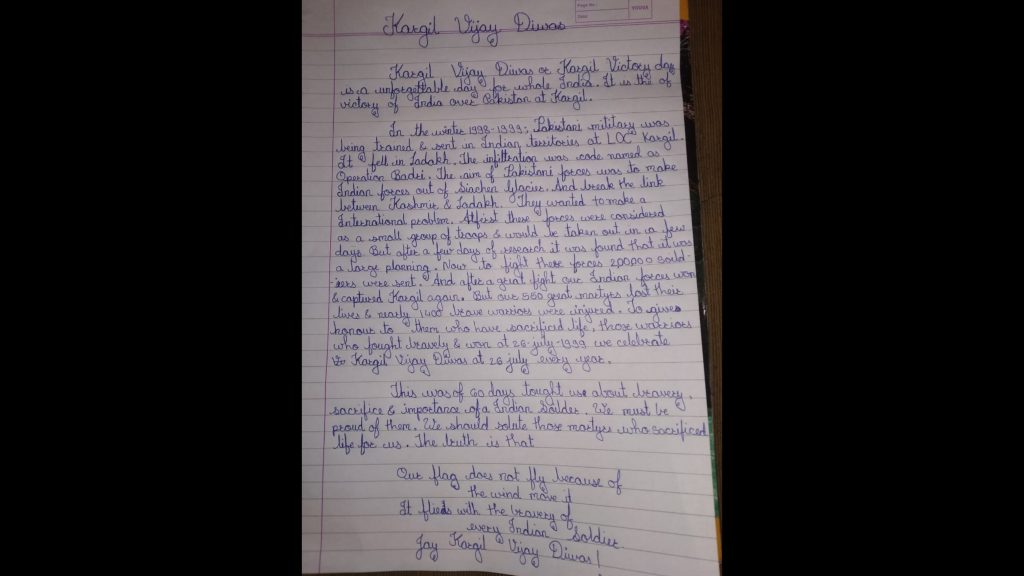 Page No.:
Date:
YOUVA
Kargil Vijay Diwas
Kargil Vijay Diwas or Kargil Victory day
is a unforgettable day for whole India. It is the of
victory of India over Pakistan at Kargil.
In the winter 1998-1999; Pakistani military was
being trained & sent in Indian territories at LOC Kargil.
It fell in Ladakh. The infiltration was code named as
Operation Badri. The aim of Pakistani forces was to make
Indian forces out of Siachen Glacier. And break the link
between Kashmir & Ladakh. They wanted to make a
International problem. Atfirst these forces were considered
as a small group of troops & would be taken out in a few
days. But after a few days of research it was found that it was
a large planning. Now to fight these forces 200,000 sould
-iers were sent. And after a great fight our Indian forces won
& captured Kargil again. But our 550 great martyrs lost their
lives & nearly 1400 brave warriors were injured. To give
honour to them who have sacrificed life, those warriors
who fought bravely & won at 26-july-1999 we celebrate
Kargil Vijay Diwas at 26 july every year.
This was of 60 days tought use about bravery,
sacrifice & importance of a Indian Solder. We must be
proud of them. We should solute those martyrs who sacrificed
life for us. The truth is that
Our flag does not fly because of
the wind move it
It flies with the bravery of
every Indian Soldier
Jay Kargil Vijay Diwas!